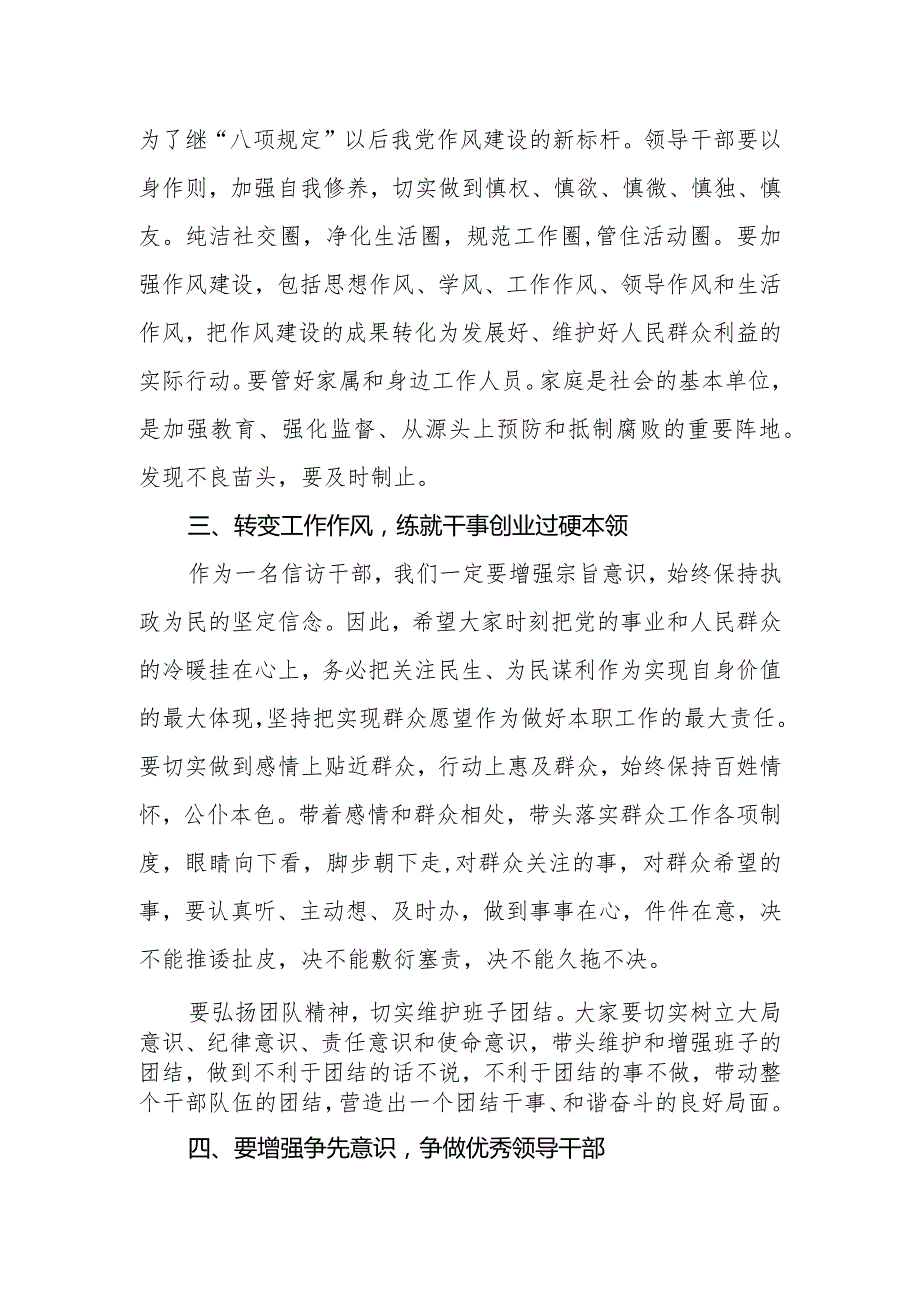 为了继“八项规定”以后我党作风建设的新标杆。领导干部要以
身作则，加强自我修养，切实做到慎权、慎欲、慎微、慎独、慎
友。纯洁社交圈，净化生活圈，规范工作圈,管住活动圈。要加
强作风建设，包括思想作风、学风、工作作风、领导作风和生活
作风，把作风建设的成果转化为发展好、维护好人民群众利益的
实际行动。要管好家属和身边工作人员。家庭是社会的基本单位，
是加强教育、强化监督、从源头上预防和抵制腐败的重要阵地。
发现不良苗头，要及时制止。
三、转变工作作风，练就干事创业过硬本领
作为一名信访干部，我们一定要增强宗旨意识，始终保持执
政为民的坚定信念。因此，希望大家时刻把党的事业和人民群众
的冷暖挂在心上，务必把关注民生、为民谋利作为实现自身价值
的最大体现,坚持把实现群众愿望作为做好本职工作的最大责任。
要切实做到感情上贴近群众，行动上惠及群众，始终保持百姓情
怀，公仆本色。带着感情和群众相处，带头落实群众工作各项制
度，眼睛向下看，脚步朝下走,对群众关注的事，对群众希望的
事，要认真听、主动想、及时办，做到事事在心，件件在意，决
不能推诿扯皮，决不能敷衍塞责，决不能久拖不决。
要弘扬团队精神，切实维护班子团结。大家要切实树立大局
意识、纪律意识、责任意识和使命意识，带头维护和增强班子的
团结，做到不利于团结的话不说，不利于团结的事不做，带动整
个干部队伍的团结,营造出一个团结干事、和谐奋斗的良好局面。
四、要增强争先意识，争做优秀领导干部